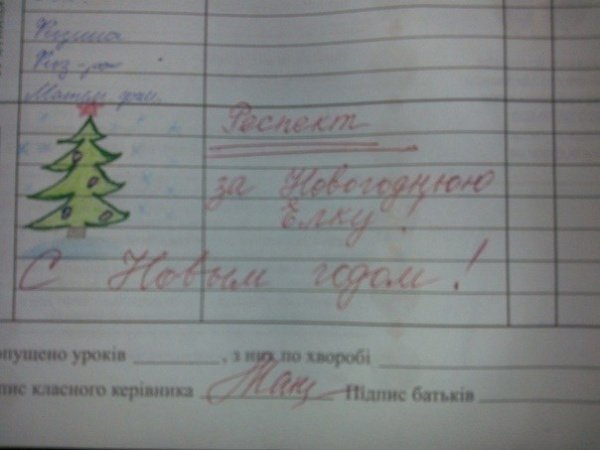 Матем
Респект
за Новогоднюю
Ёлку!
С Новым годом!
опущено уроків ________, з них по хворобі
пис класного керівника ________ Підпис батьків